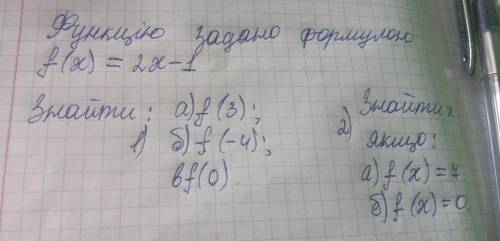 Функцію задано формулою
f(x) = 2x-1
Знайти: а) f(3);
1) б) f(-4);
в f(0).
2) Знайти x
якщо:
а) f(x) = 7
б) f(x) = 0.